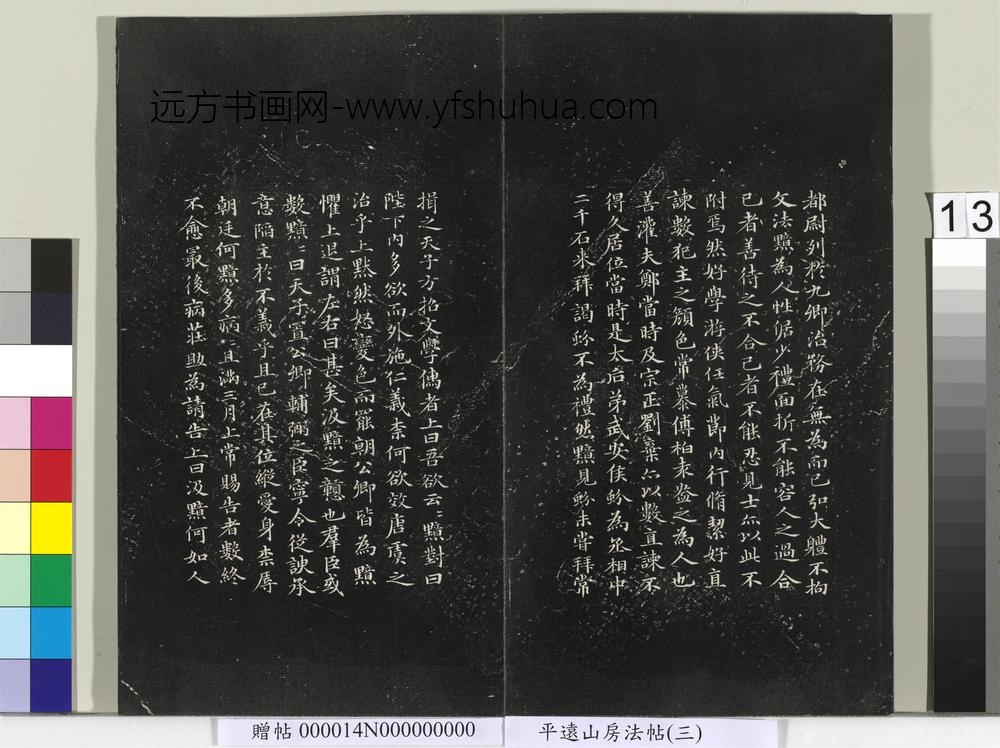 远方书画网-www.yfshuhua.com
都尉列於九卿治務在無為而已弘大體不拘
文法黯為人性倨少禮面折不能容人之過合
己者善待之不合己者不能忍見士亦以此不
附焉然好學游俠任氣節內行脩潔好直
諫數犯主之顏色常慕傅柏袁盎之為人也
善灌夫鄭當時及宗正劉棄亦以數直諫不
得久居位當時是太后弟武安侯蚡為丞相中
二千石来拜謁蚡不為禮然黯見蚡未嘗拜常
揖之天子方招文學儒者上曰吾欲云〻黯對曰
陛下內多欲而外施仁義柰何欲效唐虞之
治乎上黙然怒變色而罷朝公卿皆為黯
懼上退謂左右曰甚矣汲黯之戇也羣臣或
數黯〻曰天子置公卿輔弼之臣寧令從諛承
意陷主於不義乎且已在其位縱愛身柰辱
朝廷何黯多病〻且滿三月上常賜告者數終
不愈最後病莊助為請告上曰汲黯何如人
13
贈帖 000014N000000000
平遠山房法帖(三)